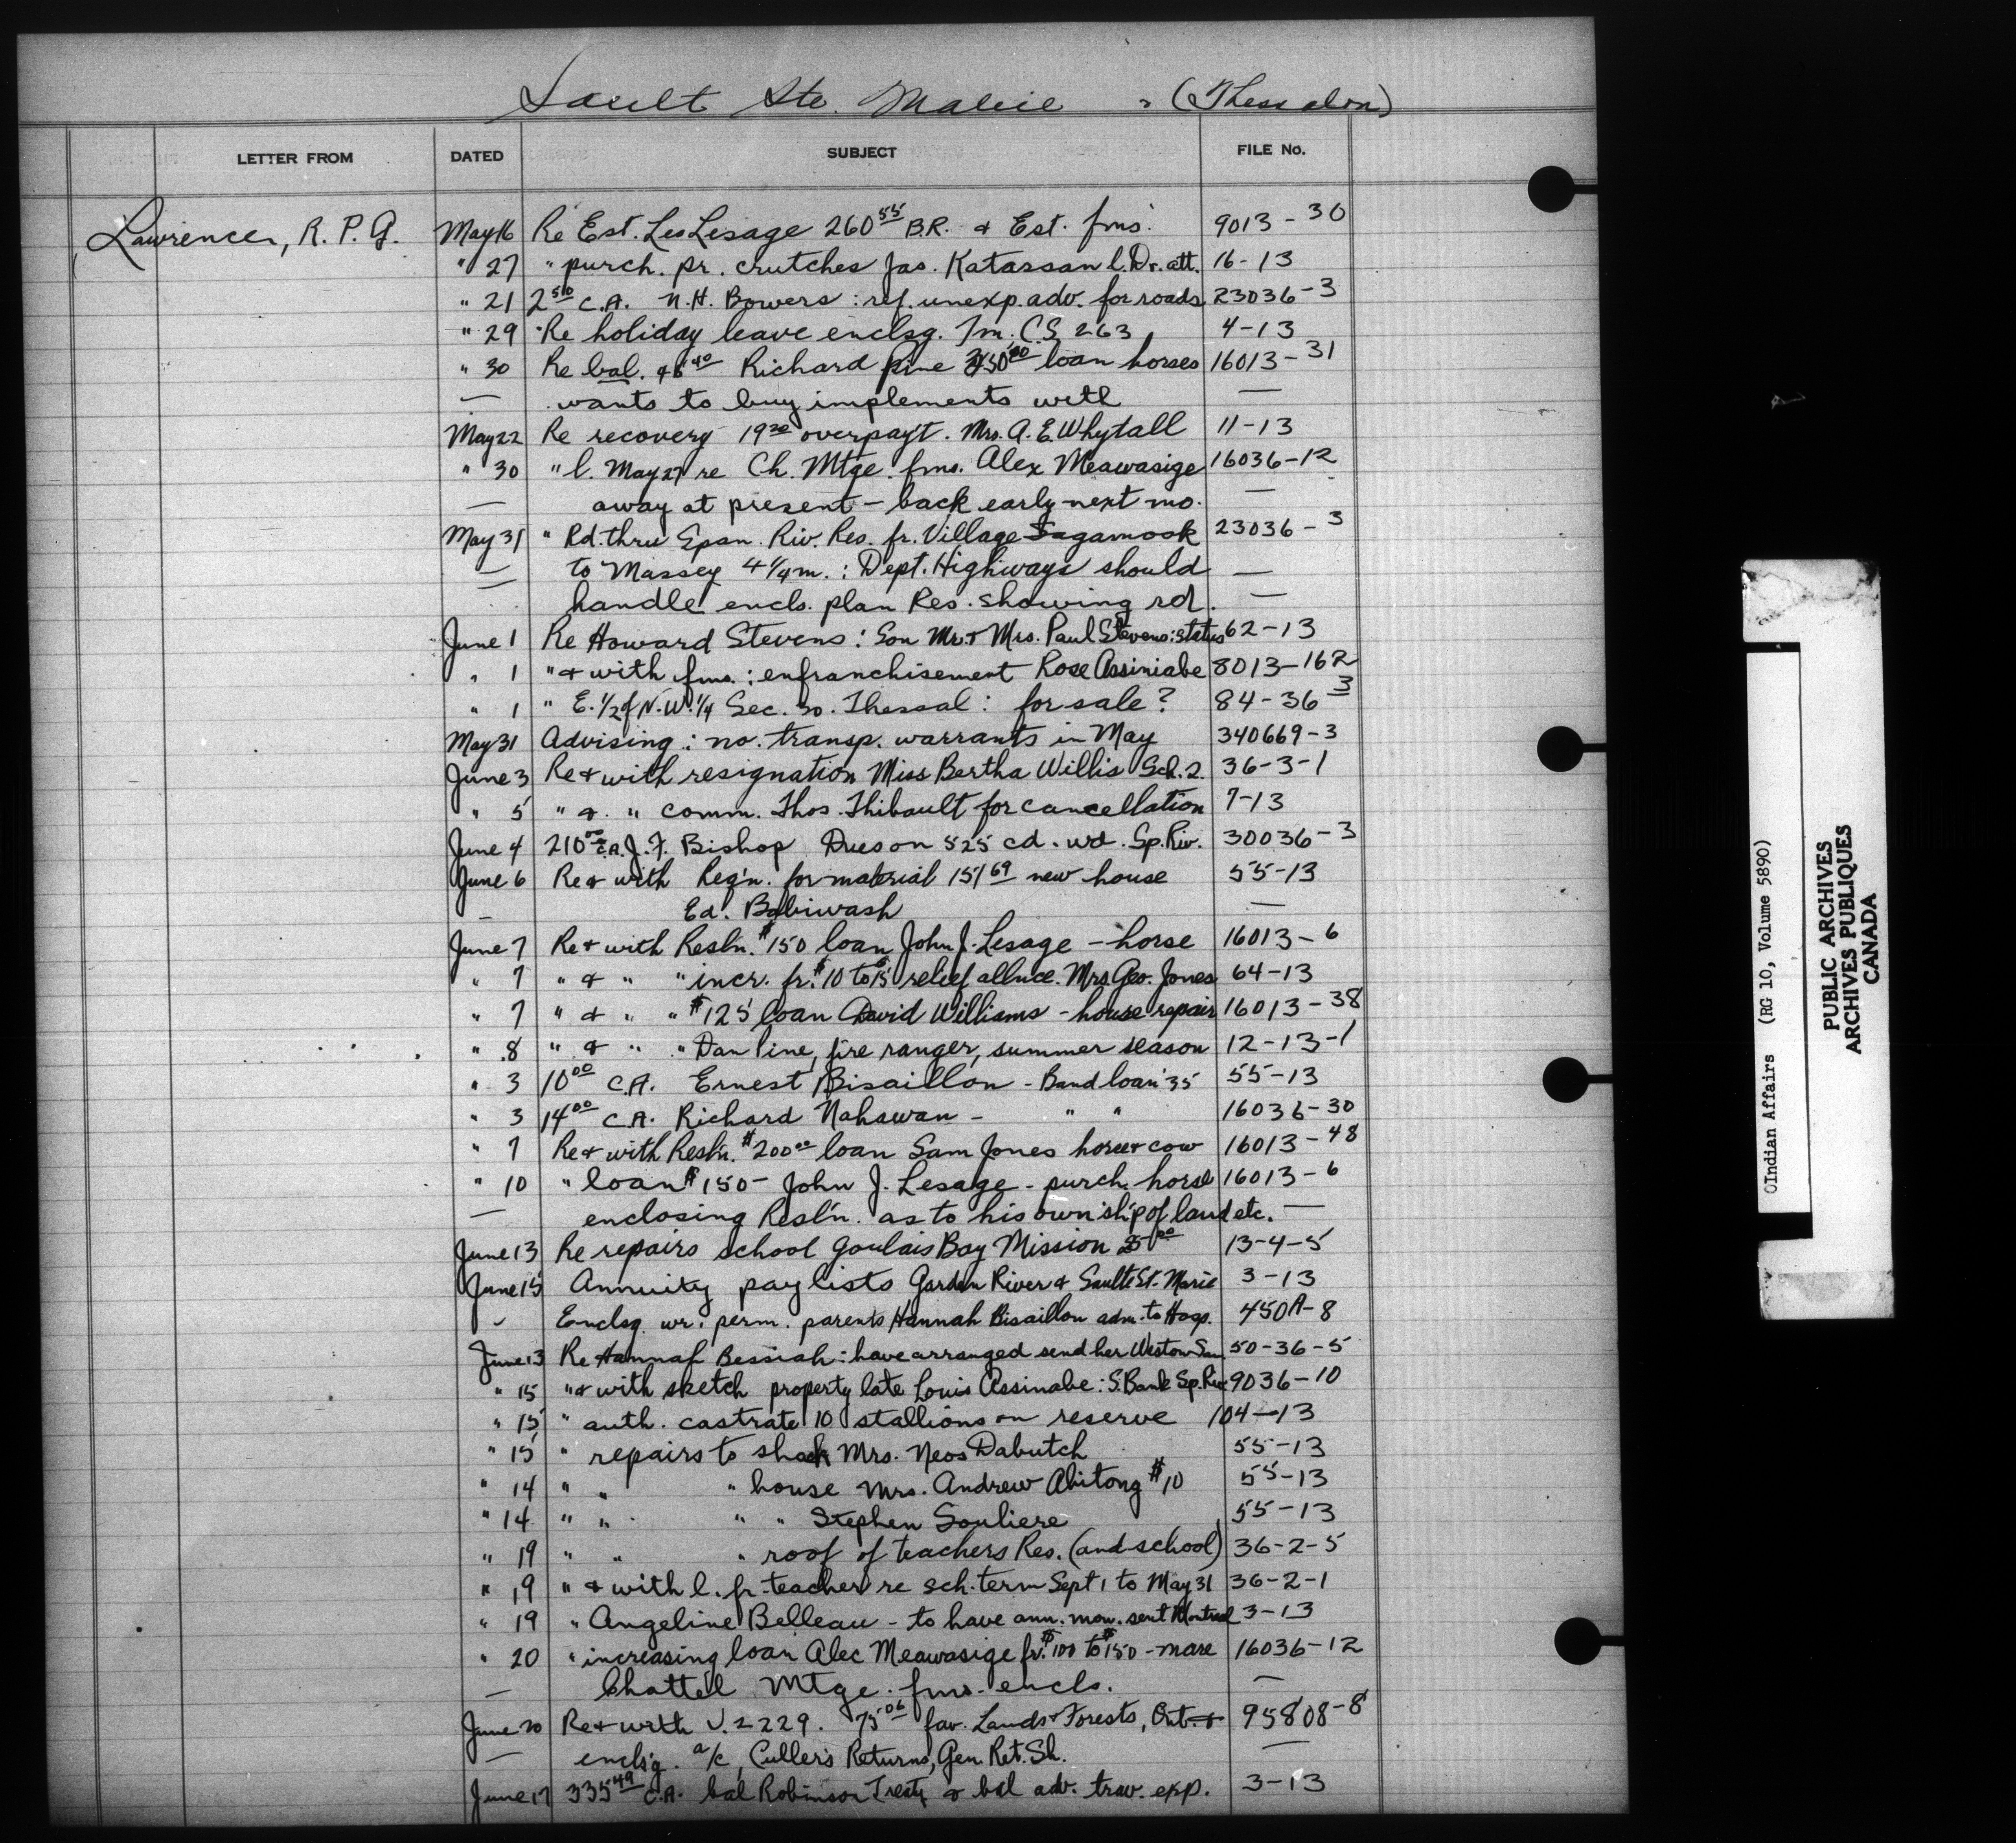 Sault Ste. Marie - (Thessalon)
LETTER FROM DATED SUBJECT FILE No.
Lawrence, R. P. G. May 16 Re Est. Les Lesage 260 55 B.R. & Est. fms. 9013-30
" 27 " purch. pr. crutches Jas. Katassan l. Dr. att. 16-13
" 21 2 50 C.A. N.H. Bowers : ref. unexp. adv. for roads 23036-3
" 29 Re holiday leave enclsg. Fm. C.S. 263 4-13
" 30 Re bal. 40 Richard Pine 00 loan horses 16013-31
— wants to buy implements with —
May 22 Re recovery 19 20 overpay't. Mrs. A. E. Whytall 11-13
" 30 " l. May 27 re Ch. Mtge. fms. Alex Meawasige 16036-12
— away at present - back early next mo. —
May 31 " Rd. thru Span. Riv. Res. fr. Village Sagamook 23036-3
— to Massey 4 1/4 m. : Dept. Highways should —
— handle encls. plan Res. showing rd. —
June 1 Re Howard Stevens : Son Mr. & Mrs. Paul Stevens : status 62-13
" 1 " & with fms. : enfranchisement Rose Assiniabe 8013-162
" 1 " E. 1/2 of N.W. 1/4 Sec. 30. Thessal : for sale? 84-36 3
May 31 Advising : no. transp. warrants in May 340669-3
June 3 Re & with resignation Miss Bertha Willis Sch. 2. 36-3-1
" 5 " & " comm. Thos. Thibault for cancellation 7-13
June 4 210 00 C.A. J. F. Bishop Dues on 525 cd. wd. Sp. Riv. 30036-3
June 6 Re & with Reqn. for material 151 69 new house 55-13
— Ed. Bobiwash —
June 7 Re & with Resln. $150 loan John J. Lesage - horse 16013-6
" 7 " & " " incr. fr. $10 to 15 relief allnce. Mrs. Geo. Jones 64-13
" 7 " & " " $125 loan David Williams - house repair 16013-38
" 8 " & " " Dan Pine, fire ranger, summer season 12-13-1
" 3 10 00 C.A. Ernest Bisaillon - Band loan '35 55-13
" 3 14 00 C.A. Richard Nahawan - " " 16036-30
" 7 Re & with Resln. $200 00 loan Sam Jones horse & cow 16013-48
" 10 " loan $150 - John J. Lesage - purch. horse 16013-6
— enclosing Resln. as to his own'ship of land etc. —
June 13 Re repairs school Goulais Bay Mission 00 13-4-5
June 15 Annuity pay lists Garden River & Sault St. Marie 3-13
- Enclsg. wr. perm. parents Hannah Bisaillon adm. to Hosp. 450A-8
June 13 Re Hannah Bessiah : have arranged send her Weston San. 50-36-5
" 15 " & with sketch property late Louis Assinabe : S. Bank Sp. Riv. 9036-10
" 15 " auth. castrate 10 stallions on reserve 104-13
" 15 " repairs to shack Mrs. Neos Dabutch 55-13
" 14 " " " house Mrs. Andrew Abitong $10 55-13
" 14 " " " " Stephen Souliere 55-13
" 19 " " " roof of teachers Res. (and school) 36-2-5
" 19 " & with l. fr. teacher re sch. term Sept 1 to May 31 36-2-1
" 19 " Angeline Belleau - to have ann. mon. sent Montreal 3-13
" 20 " increasing loan Alec Meawasige fr. $100 to $150 - mare 16036-12
— Chattel Mtge. fms. encls. —
June 20 Re & with V. 2229. 75 06 fav. Lands & Forests, Ont. & 95808-8
— enclsg. a/c, Culler's Returns, Gen. Ret. Sh. —
June 17 335 49 C.A. bal Robinson Treaty & bal adv. trav. exp. 3-13
(Indian Affairs (RG 10, Volume 5890)
PUBLIC ARCHIVES
ARCHIVES PUBLIQUES
CANADA